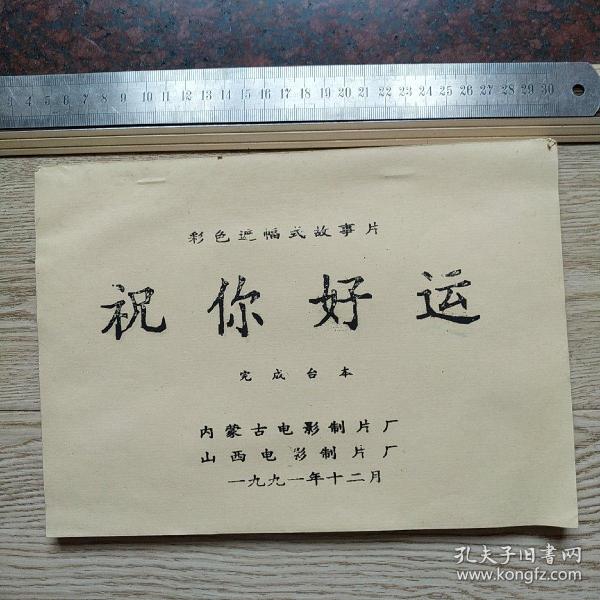 3 4 5 6 7 8 9 10 11 12 13 14 15 16 17 18 19 20 21 22 23 24 25 26 27 28 29 30
彩色遮幅式故事片
祝你好运
完成台本
内蒙古电影制片厂
山西电影制片厂
一九九一年十二月
孔夫子旧书网
www.kongfz.com